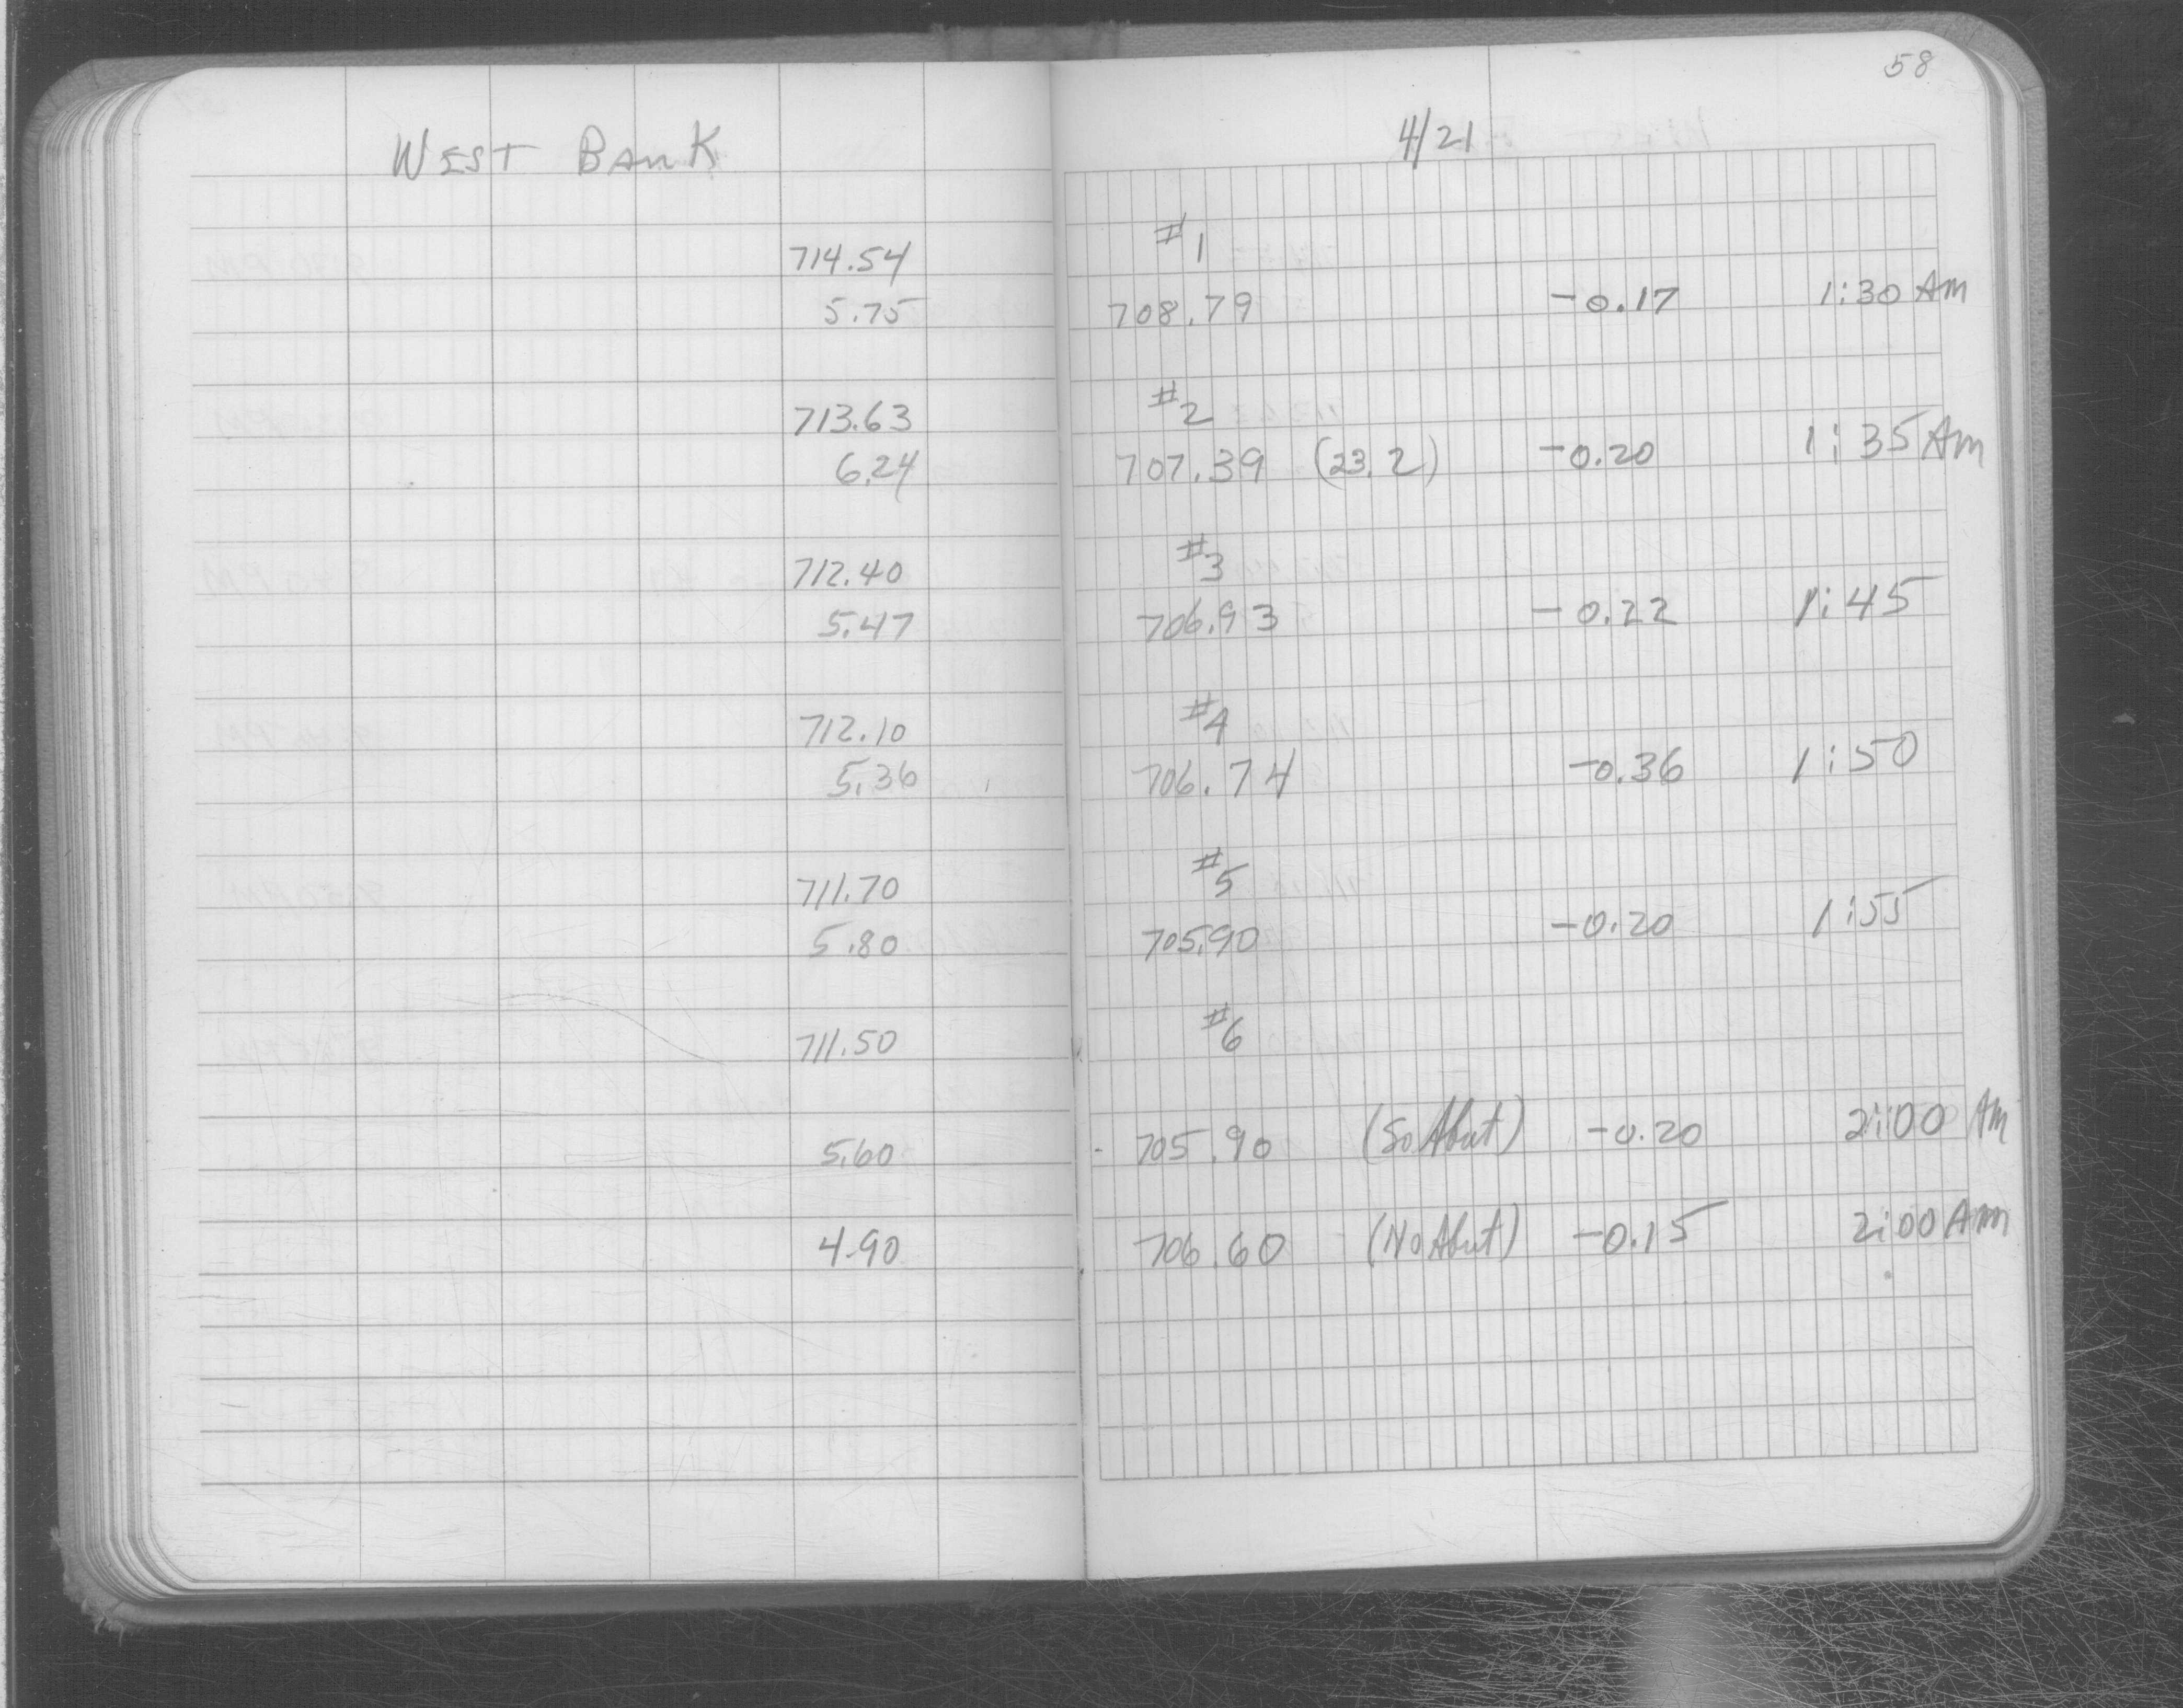 58
WEST BANK 4/21
714.54 #1
5.75 708.79 -0.17 1:30 AM
713.63 #2
6.24 707.39 (23.2) -0.20 1:35 AM
712.40 #3
5.47 706.93 -0.22 1:45
712.10 #4
5.36 706.74 -0.36 1:50
711.70 #5
5.80 705.90 -0.20 1:55
711.50 #6
5.60 705.90 (So Abut) -0.20 2:00 AM
4.90 706.60 (No Abut) -0.15 2:00 AM